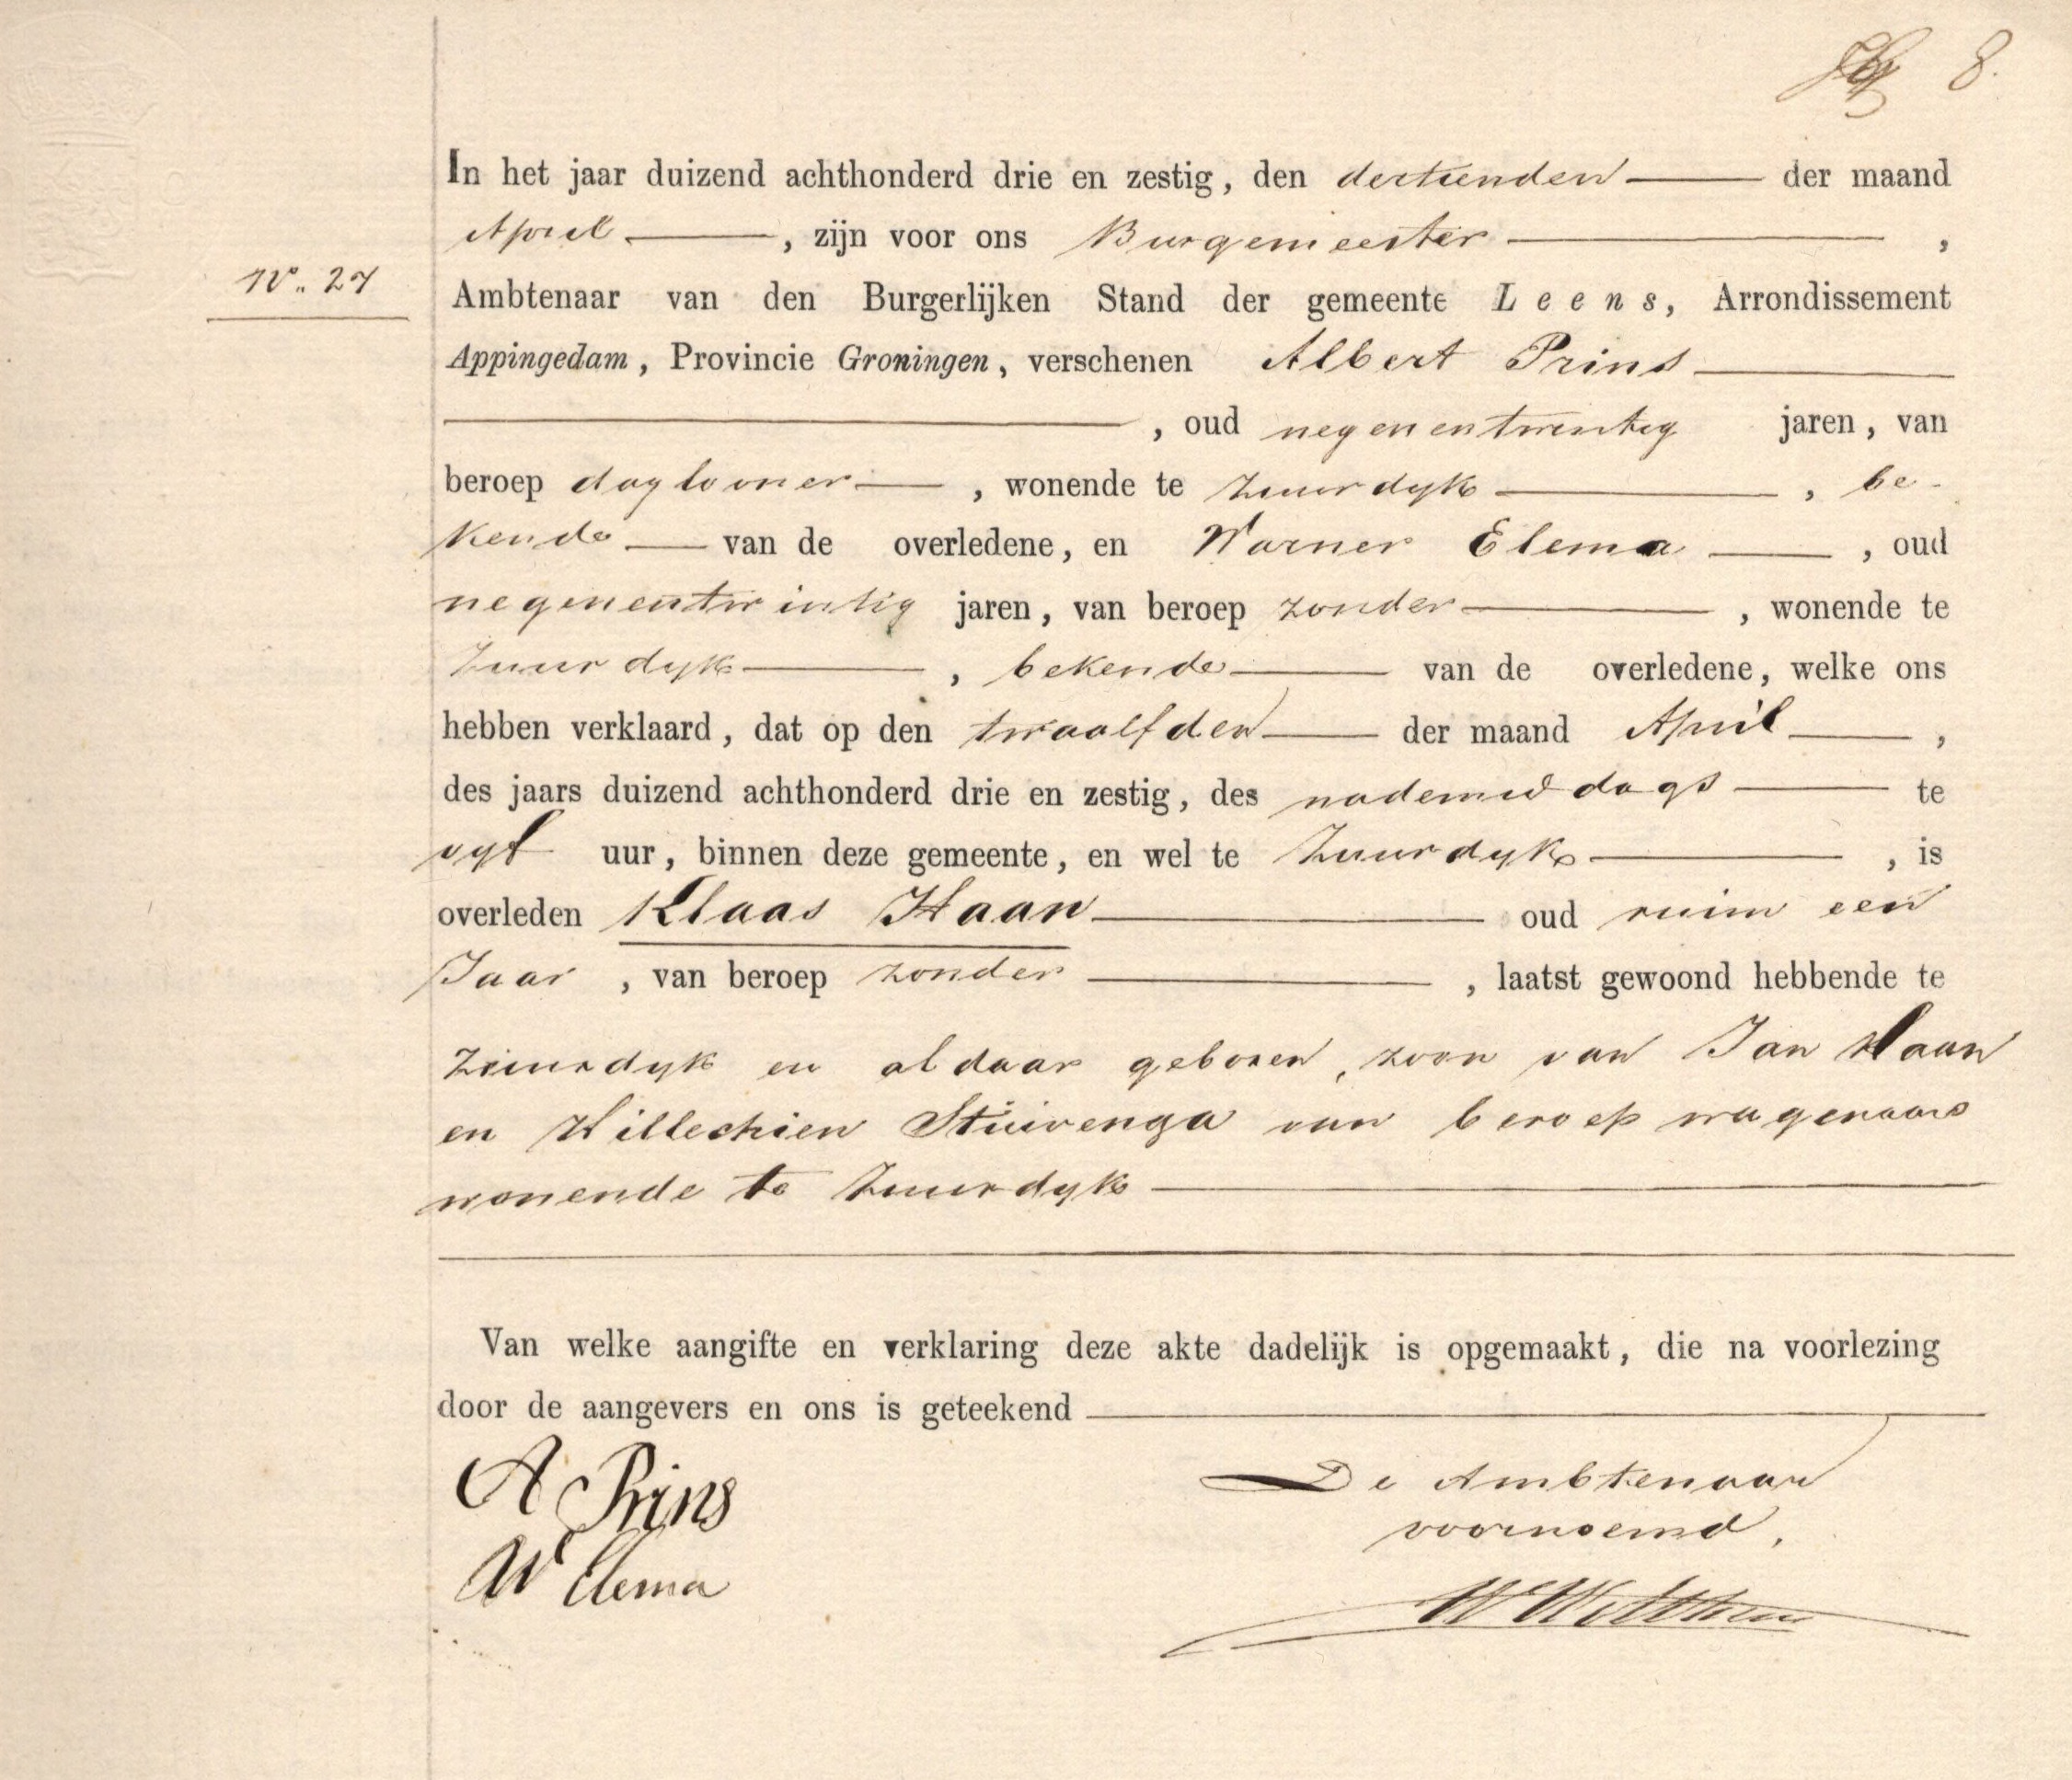 8.
In het jaar duizend achthonderd drie en zestig, den dertienden der maand
April, zijn voor ons Burgemeester,
N°. 27
Ambtenaar van den Burgerlijken Stand der gemeente Leens, Arrondissement
Appingedam, Provincie Groningen, verschenen Albert Prins
, oud negenentwintig jaren, van
beroep daglooner, wonende te Zuurdyk, be-
kende van de overledene, en Warner Elema, oud
negenentwintig jaren, van beroep zonder, wonende te
Zuurdyk, bekende van de overledene, welke ons
hebben verklaard, dat op den twaalfden der maand April,
des jaars duizend achthonderd drie en zestig, des nademiddags te
vyf uur, binnen deze gemeente, en wel te Zuurdyk, is
overleden Klaas Haan oud ruim een
Jaar, van beroep zonder, laatst gewoond hebbende te
Zuurdyk en aldaar geboren, zoon van Jan Haan
en Hillechien Stuivenga van beroep wagenaars
wonende te Zuurdyk
Van welke aangifte en verklaring deze akte dadelijk is opgemaakt, die na voorlezing
door de aangevers en ons is geteekend
A Prins
W Elema
De Ambtenaar
voornoemd,